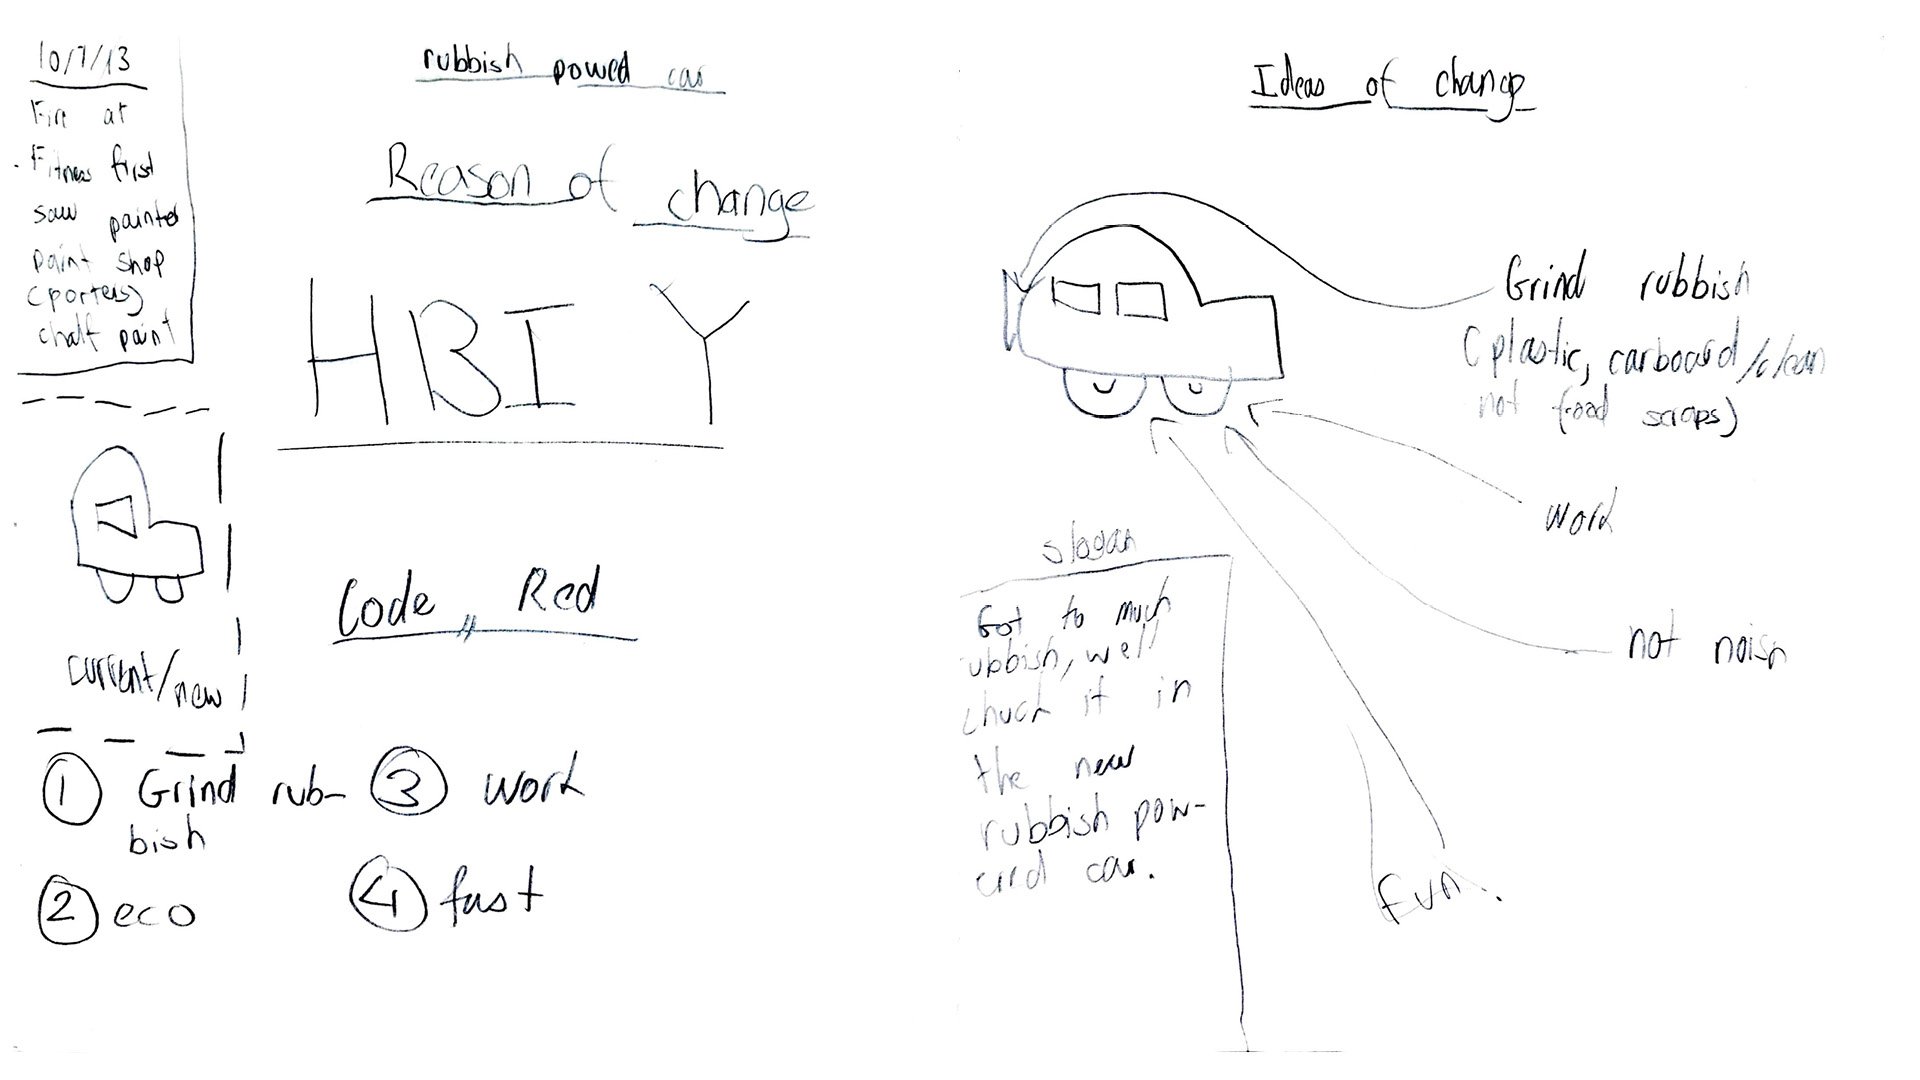 10/7/13
Fire at
Fitness first
saw painted
paint shop
(porters)
chalf paint
rubbish powed car
Reason of change
HBI Y
Code ,, Red
current/new
① Grind rub-
bish
② eco
③ work
④ fast
Ideas of change
Grind rubbish
(plastic, carboard/clean
not food scraps)
work
not noisy
Fun.
slogan
Got to much
ubbish, well
chuck it in
the new
rubbish pow-
erd car.